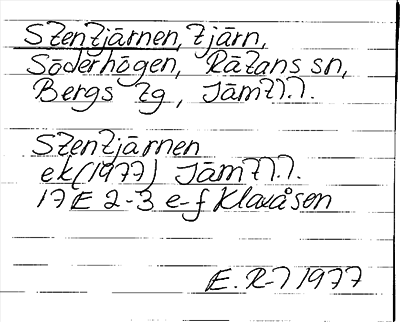 Stentjärnen, tjärn,
Söderhögen, Rätans sn,
Bergs tg, Jämtl.l.
Stentjärnen
ek(1977) Jämtl.l.
17 E 2-3 e-f Klaxåsen
E. R-l 1977